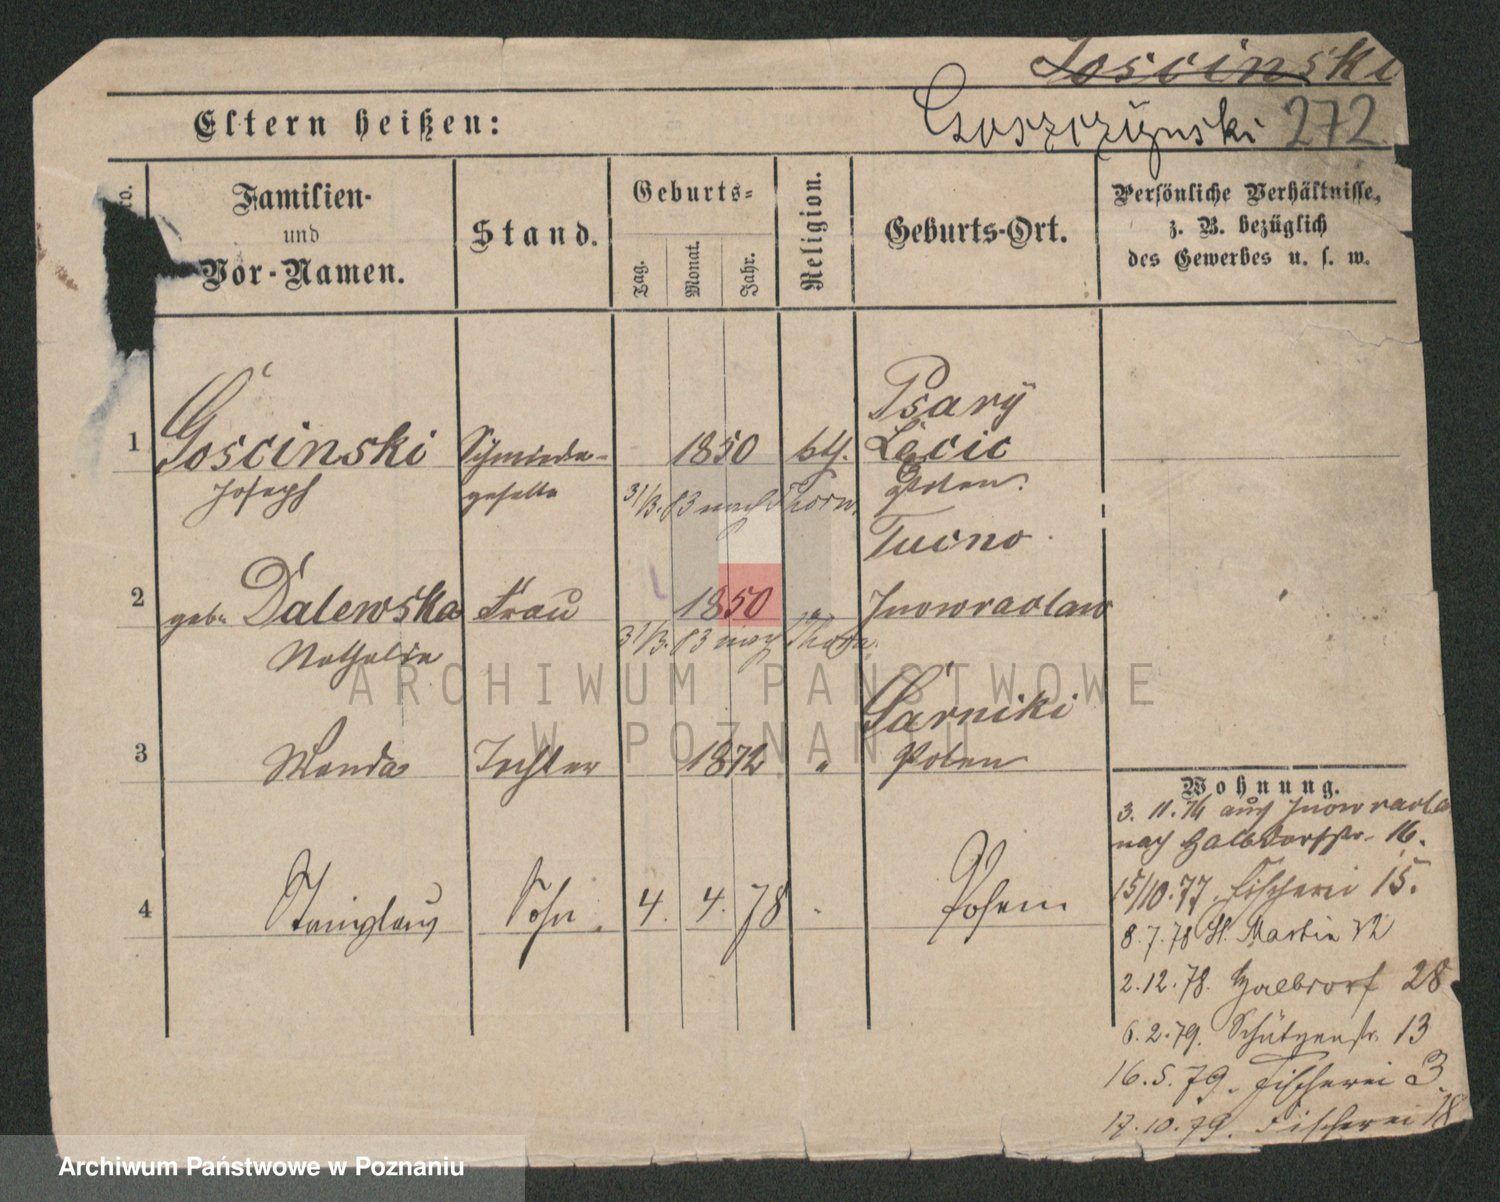 Goscinski
Goszczÿnski 272.
Eltern heißen:
No.
Familien-
und
Vor-Namen.
Stand.
Geburts-
Tag.
Monat.
Jahr.
Religion.
Geburts-Ort.
Persönliche Verhältnisse,
z. B. bezüglich
des Gewerbes u. s. w.
Psarÿ
1 Goscinski Schmiede- 1850 kth.
Joseph geselle Polen.
31/3. 83 nach Thorn.
Tucno
2 geb. Dalewska Frau 1850 " Inowraclaw
Nathalie
31/3. 83 nach Thorn.
Sarniki
3 Wanda Tochter 1872 " Polen
4 Stanislaus Sohn 4. 4. 78 Posen
Wohnung.
3. 11. 76 aus Inowracla
nach Halbdorfstr. 16.
15/10. 77. Fischerei 15.
8. 7. 78 St. Martin
2. 12. 78. Halbdorf 28
6. 2. 79. Schützenstr. 13
16. 5. 79. Fischerei 3.
17. 10. 79. Fischerei 18
ARCHIWUM PAŃSTWOWE
W POZNANIU
Archiwum Państwowe w Poznaniu